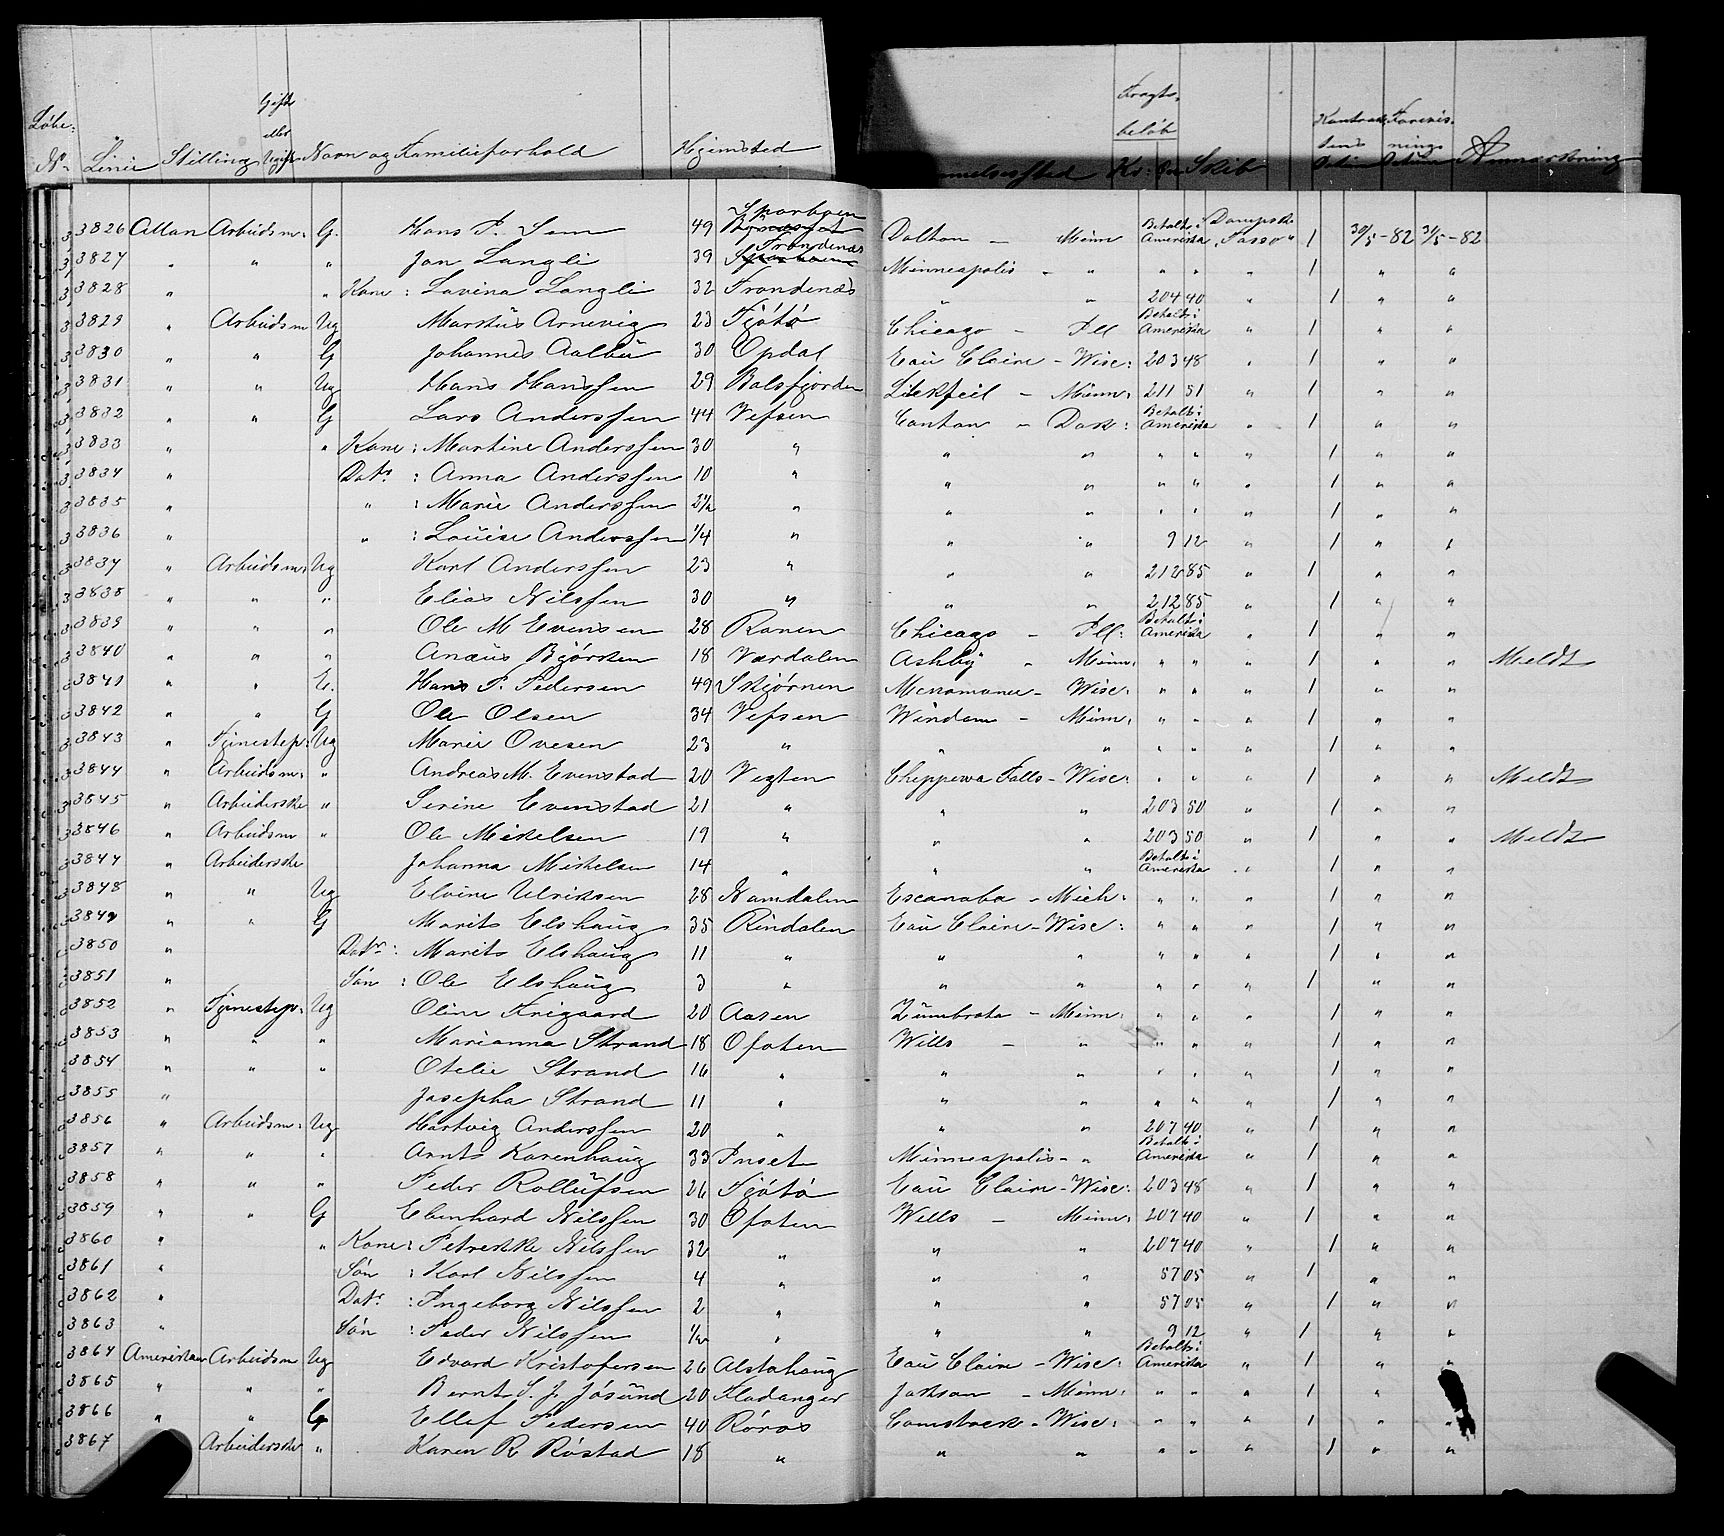 Løbe- No. Linie Stilling Gift eller Ugift Navn og Familieforhold Hjemsted Fragtbeløb Kr: Øre Skib Anmærkning
3826 Allan Arbeidsm: G. Hans P. Sem 49 Sparboen Dalton – Minn Betalt i Amerika Dampsk. "Tasso" 1 30/5-82 31/5-82
3827 " " " Jon Langli 39 Trondenæs Minneapolis – " " " " 1 " "
3828 " " Kone: Lavina Langli 32 Trondenæs " " 204 40 " 1 " "
3829 " Arbeidsm Ug Martius Arnevig 23 Tjøtø Chicago – Ill Betalt i Amerika " 1 " "
3830 " " G Johannes Aalbu 30 Opdal Eau Claire – Wisc: 203 48 " 1 " "
3831 " " Ug Hans Hanssen 29 Balsfjorden – Minn: 211 51 " 1 " "
3832 " " G Lars Anderssen 44 Vefsen Canton – Dak: Betalt i Amerika " 1 " "
3833 " " Kone: Martine Anderssen 30 " " " " " " 1 " "
3834 " Datr: Anna Anderssen 10 " " " " " " 1 " "
3835 " " : Marie Anderssen 2½ " " " " " " 1 " "
3836 " " : Louise Anderssen 1/4 " " " 9 12 1 " "
3837 " Arbeidsm: Ug Karl Anderssen 23 " " " 212 85 " 1 " "
3838 " " " Elias Nilssen 30 " " " 212 85 1 " "
3839 " " " Ole M Evensen 28 Ranen Chicago – Ill: Betalt i Amerika " 1 " "
3840 " " " Anæus Bjørken 18 Værdalen Ashby – Minn: " " " 1 " " Meldt
3841 " " E. Hans P. Pedersen 49 Skjørnen – Wisc: " " " 1 " "
3842 " " G Ole Olsen 34 Vefsen Windom – Minn: " " " 1 " "
3843 " Tjenestep: Ug Marie Ovesen 23 " " " " " " 1 " "
3844 " Arbeidsm: " Andreas M. Evenstad 20 Vegten Cheppewa Falls – Wisc: " " " 1 " " Meldt
3845 " Arbeiderske " Serine Evenstad 21 " " " 203 50 " 1 " "
3846 " Arbeidsm " Ole Mikelsen 19 " " " 203 50 " 1 " " Meldt
3847 " Arbeiderske Johanna Mikelsen 14 " " " Betalt i Amerika " 1 " "
3848 " " Ug Elvine Ulriksen 28 Namdalen Escanaba – Mich: " " " 1 " "
3849 " " G Marits Elshaug 35 Rindalen Eau Claire – Wisc: " " " 1 " "
3850 " Datr: Marits Elshaug 11 " " " " " " 1 " "
3851 " Søn: Ole Elshaug 3 " " " " " " 1 " "
3852 " Tjenestep: Ug Oline Frigaard 20 Aasen Zumbrota – Minn: " " " 1 " "
3853 " " " Marianna Strand 18 Ofoten Wills – " " " " 1 " "
3854 " " " Otelie Strand 16 " " " " " " 1 " "
3855 " Josepha Strand 11 " " " " " " 1 " "
3856 " Arbeidsm: Ug Hartvig Anderssen 20 " " " 207 40 " 1 " "
3857 " " " Arnts Karenhaug 33 Inset Minneapolis – " Betalt i Amerika " 1 " "
3858 " " " Peder Rollufsen 26 Tjøtø Eau Claire – Wisc: 203 48 " 1 " "
3859 " " G Ebenhard Nilssen 30 Ofoten Wills – Minn: 207 40 " 1 " "
3860 " " Kone: Petrekke Nilssen 32 " " " 207 40 " 1 " "
3861 " Søn: Karl Nilssen 4 " " " 57 05 " 1 " "
3862 " Datr: Ingeborg Nilssen 2 " " " 57 05 " 1 " "
3863 " Søn: Peder Nilssen " " " 9 12 " 1 " "
3864 Amerikan Arbeidsm Ug Edvard Kristofersen 26 Alstahaug Eau Claire – Wisc: Betalt i Amerika " 1 " "
3865 " " " Bernt S. J. Jøsund 20 Fladanger Jakson – Minn: " " " 1 "
3866 " " G Ellef Pedersen 40 Røros Comstock – Wisc: " " " 1 " "
3867 Arbeiderske " Karen R Røstad 18 " " " " " " 1 " "